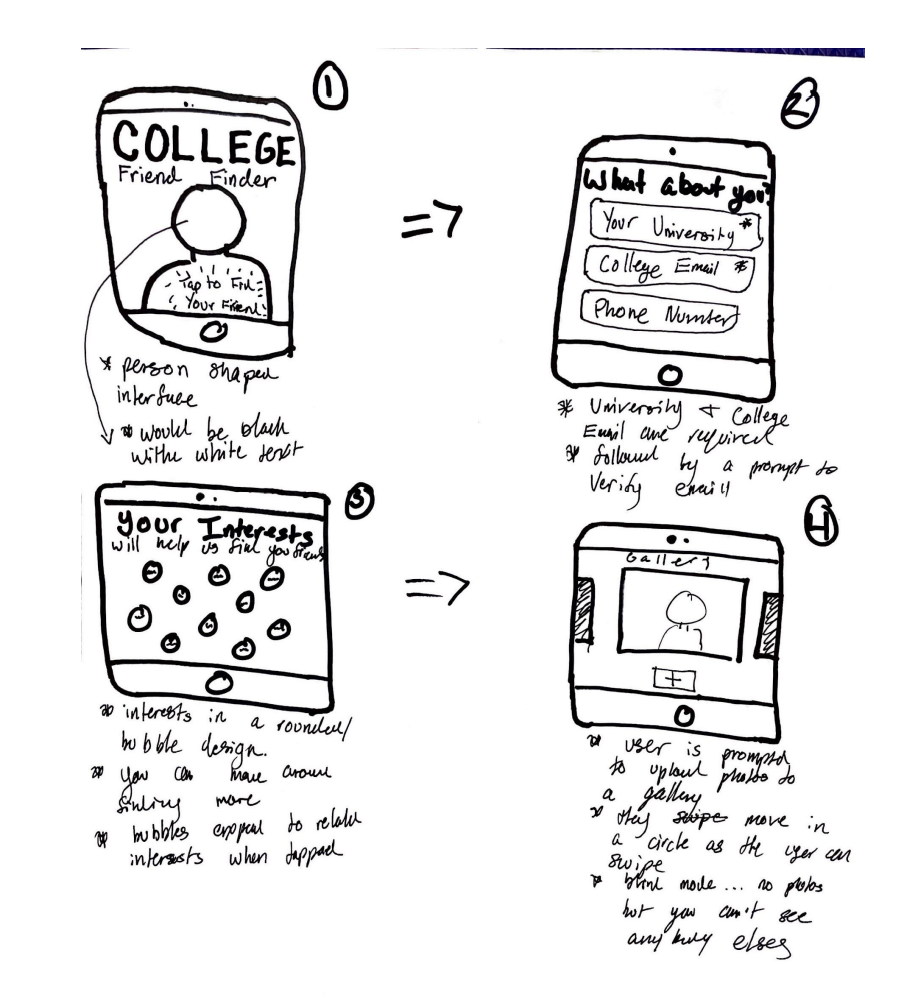 1
COLLEGE
Friend Finder
Tap to Find
Your Friend
* person shaped
interface
* would be black
withe white text
2
What about you?
Your University *
College Email *
Phone Number
* University & College
Email are required
* followed by a prompt to
Verify email!
3
Your Interests
will help us find you friends
* interests in a rounded/
bubble design.
* you can move around
finding more
* bubbles expand to relate
interests when tapped
4
Gallery
+
* user is prompted
to upload photos to
a gallery
* they swipe move in
a circle as the user can
swipe
* blind mode... no photos
but you can't see
anybody elses